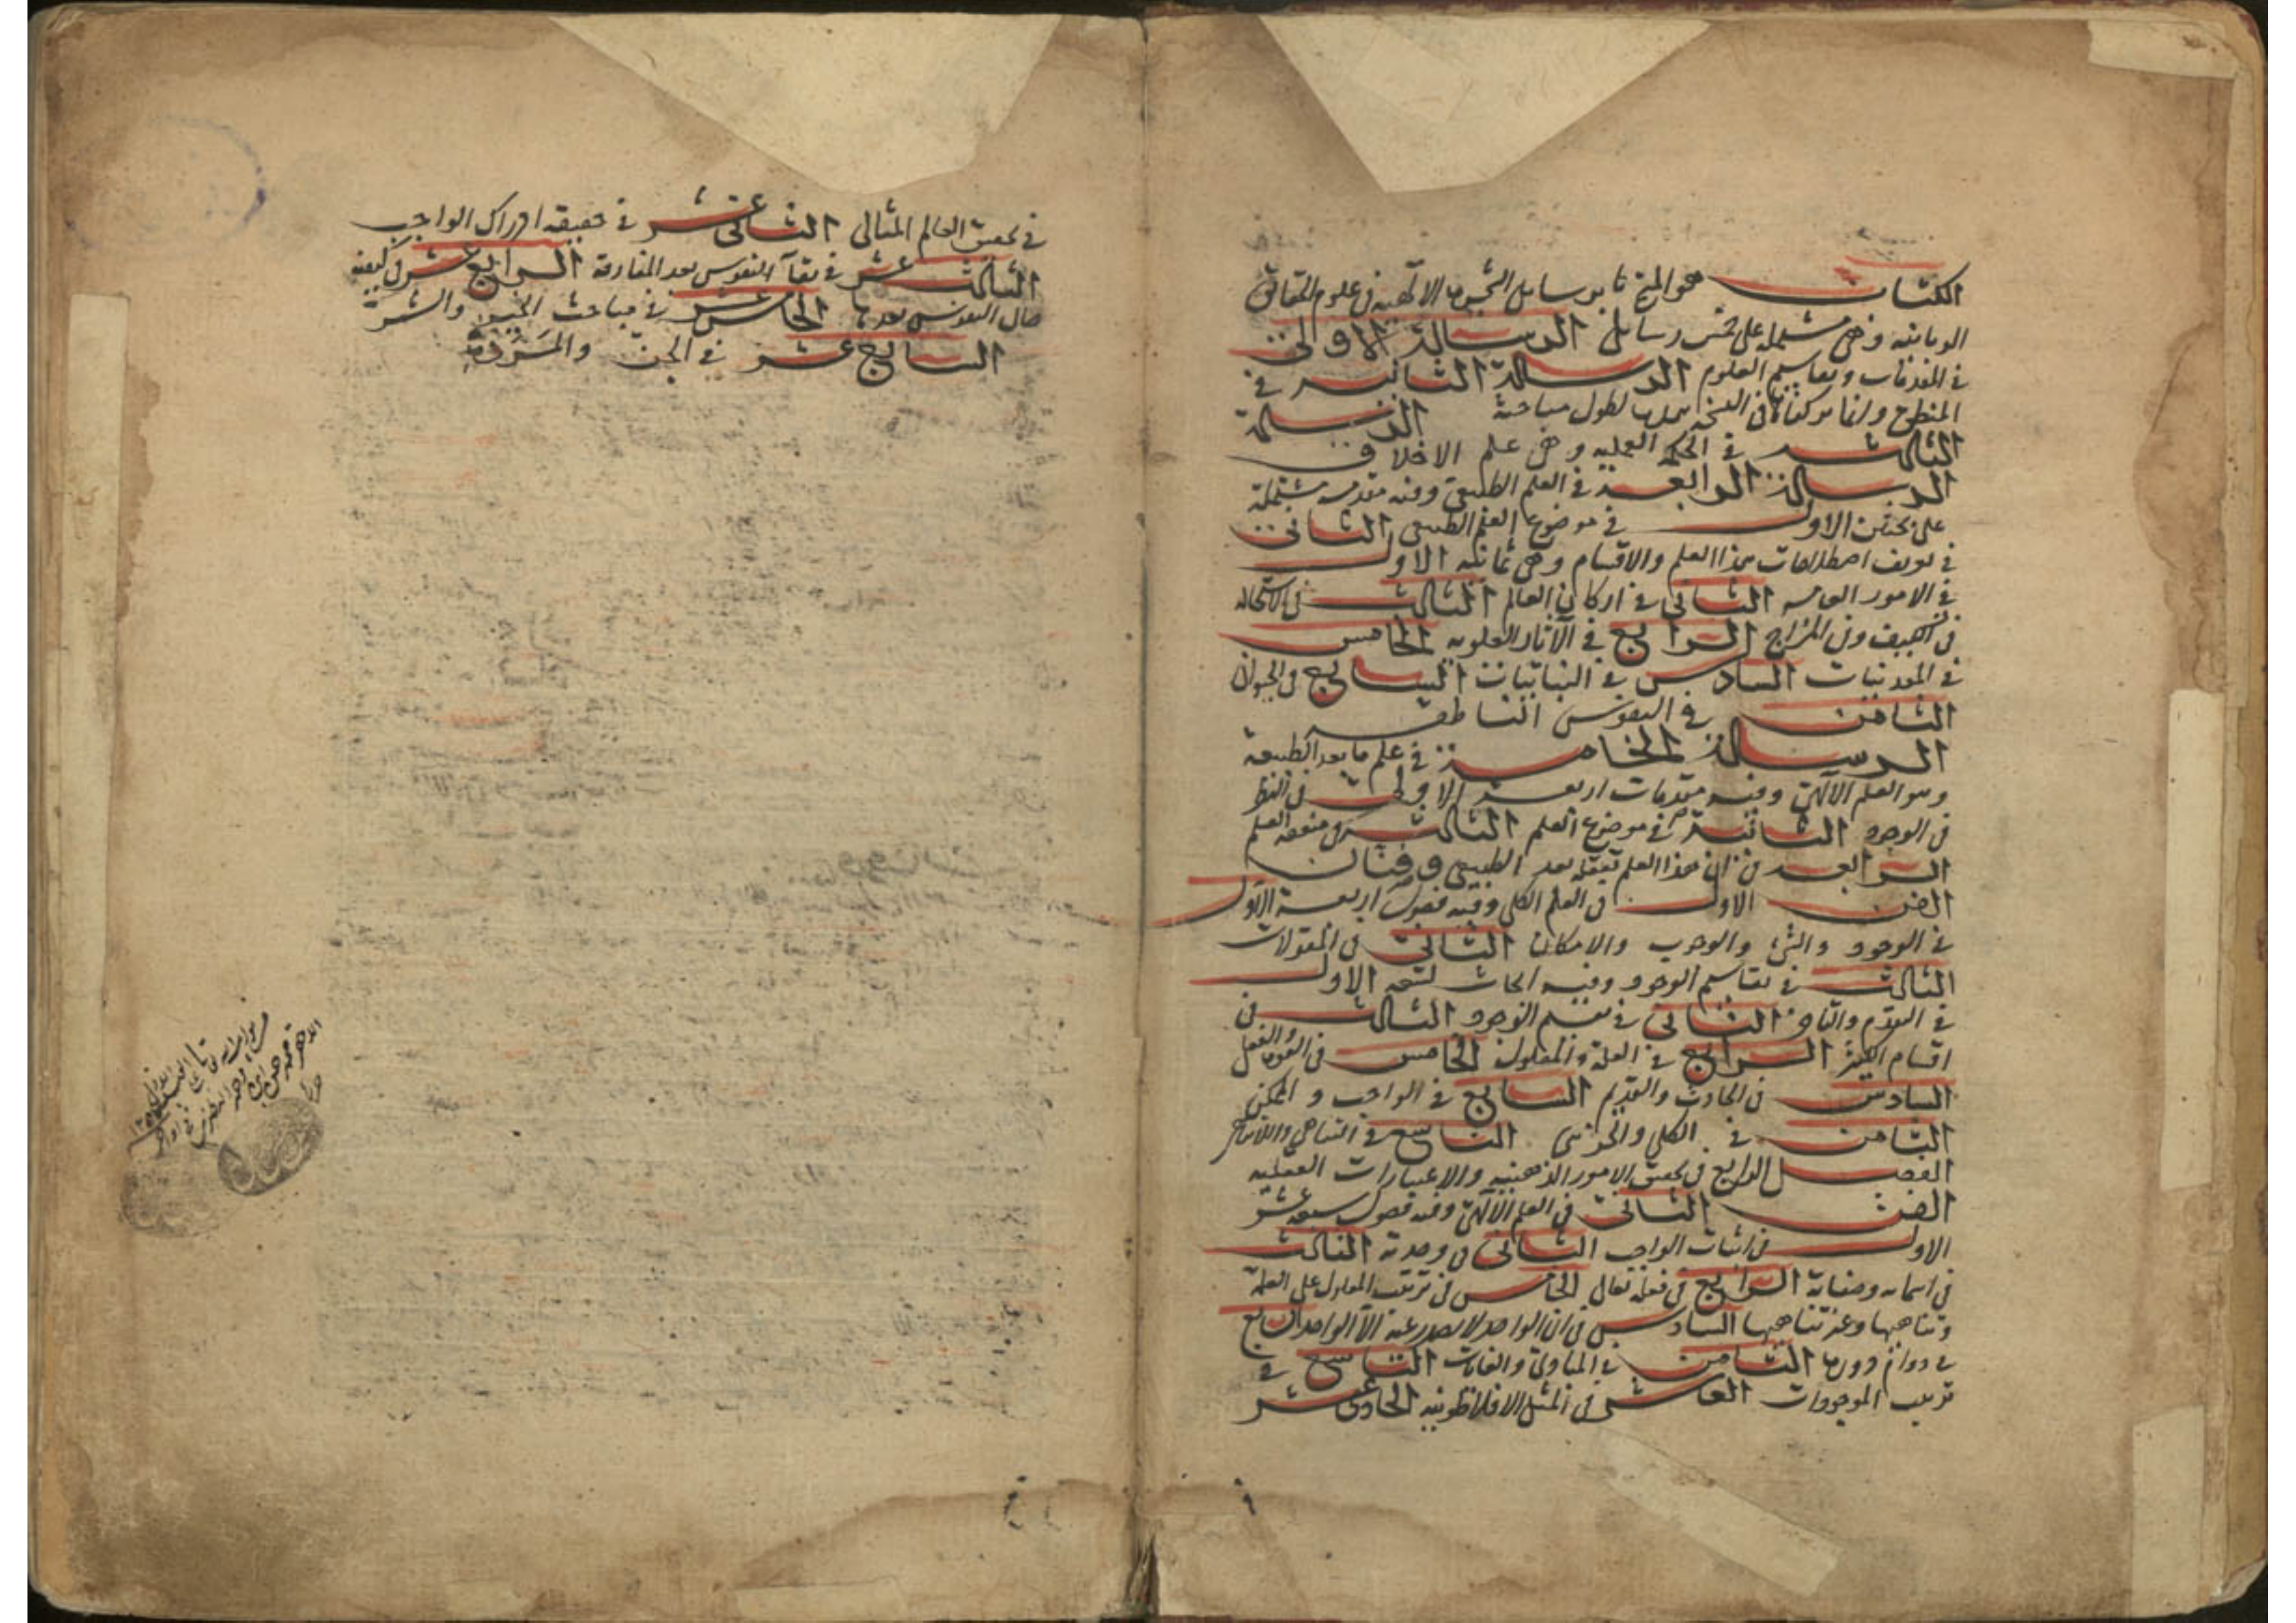 الكتاب هو المترجم برسايل الشجرة الالهية في علوم الحقايق
الربانية وهي مشتملة على خمس رسايل الرسالة الاولى
في المقدمات وتقاسيم العلوم الرسالة الثانية في
المنطق لطول مباحثه الرسالة
الثالثة في الحكمة العملية وهي علم الاخلاق
الرسالة الرابعة في العلم الطبيعي وفيه مقدمة مشتملة
على بحثين الاول في موضوع العلم الطبيعي الثاني
في تعريف اصطلاحات هذا العلم والاقسام وهي ثمانية الاول
في الامور العامة الثاني في اركان العالم الثالث في الاستحالة
في الكيف وفي المزاج الرابع في الآثار العلوية الخامس
في المعدنيات السادس في النباتيات السابع في الحيوان
الثامن في النفوس الناطقة
الرسالة الخامسة في علم ما بعد الطبيعة
وهو العلم الالهي وفيه مقدمات اربعة الاولى في النظر
في الوجود الثانية في موضوع العلم الثالث في منفعة العلم
الرابعة في ان هذا العلم بعد الطبيعي وفنان
الفن الاول في العلم الكلي وفيه فصول اربعة الاول
في الوجود والشئ والوجوب والامكان الثاني في المقولات
الثالث في تقاسيم الوجود وفيه ابحاث تسعة الاول
في التقدم والتاخر الثاني في الوجود الثالث في
اقسام الكثرة الرابع في العلة والمعلول الخامس في القوة والفعل
السادس في الحادث والقديم السابع في الواجب والممكن
الثامن في الكلي والجزئي التاسع في التناهي واللاتناهي
الفصل الرابع في تحقيق الامور الذهنية والاعتبارات العقلية
الفن الثاني في العلم الالهي وفيه فصول سبعة عشر
الاول في اثبات الواجب الثاني في وحدته الثالث
في اسمائه وصفاته الرابع في فعله تعالى الخامس في ترتب المعلول على العلة
وتناهيها وعدم تناهيها السادس في ان الواحد لا يصدر عنه الا الواحد السابع
في دوام الثامن في المبادئ والغايات التاسع في
ترتيب الموجودات العاشر في المثل الافلاطونية الحادي عشر
في تحقيق العالم المثالي الثاني عشر في حقيقة ادراك الواجب
الثالث عشر في بقآ النفوس بعد المفارقة الرابع عشر في كيفية
حال النفوس بعدها الخامس عشر في مباحث الخير والشر
السابع عشر في الجن والمَرَدة